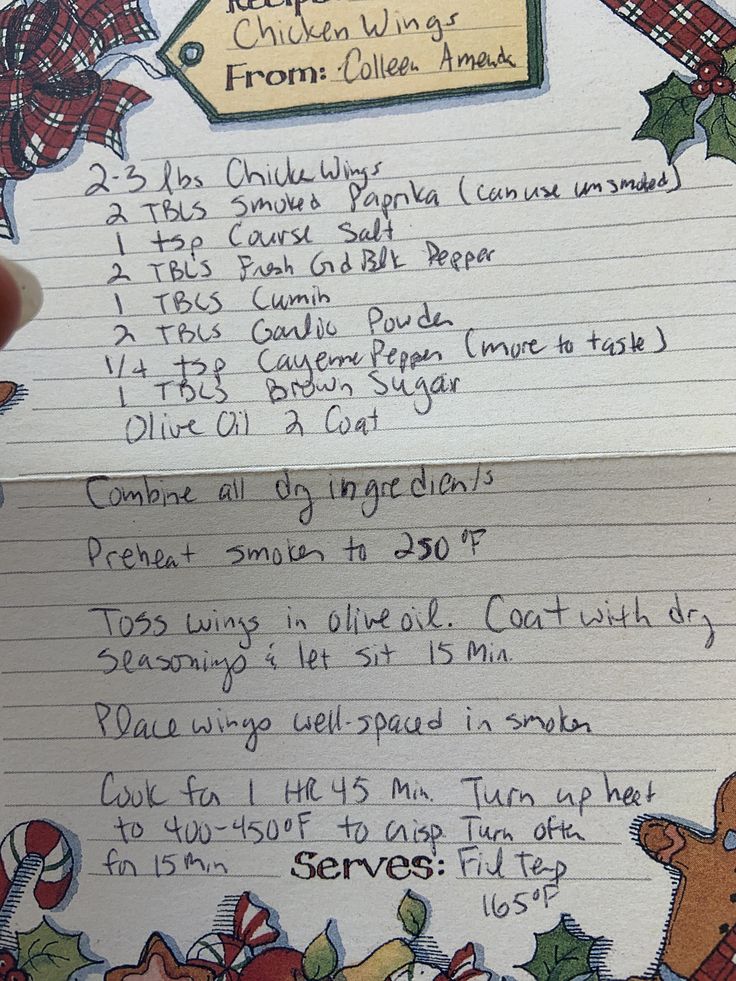 Recipe
Chicken Wings
From: Colleen Amenda
2-3 lbs Chicke Wings
2 TBLS Smoked Paprika (can use unsmoked)
1 tsp Course Salt
2 TBLS Fresh Grd Blk Pepper
1 TBLS Cumin
2 TBLS Garlic Powder
1/4 tsp Cayenne Pepper (more to taste)
1 TBLS Brown Sugar
Olive Oil 2 Coat
Combine all dry ingredients
Preheat smoker to 250°F
Toss wings in olive oil. Coat with dry
seasonings & let sit 15 Min.
Place wings well-spaced in smoker
Cook for 1 HR 45 Min. Turn up heat
to 400-450°F to crisp Turn often
for 15 Min Serves: Fin Temp
165°F